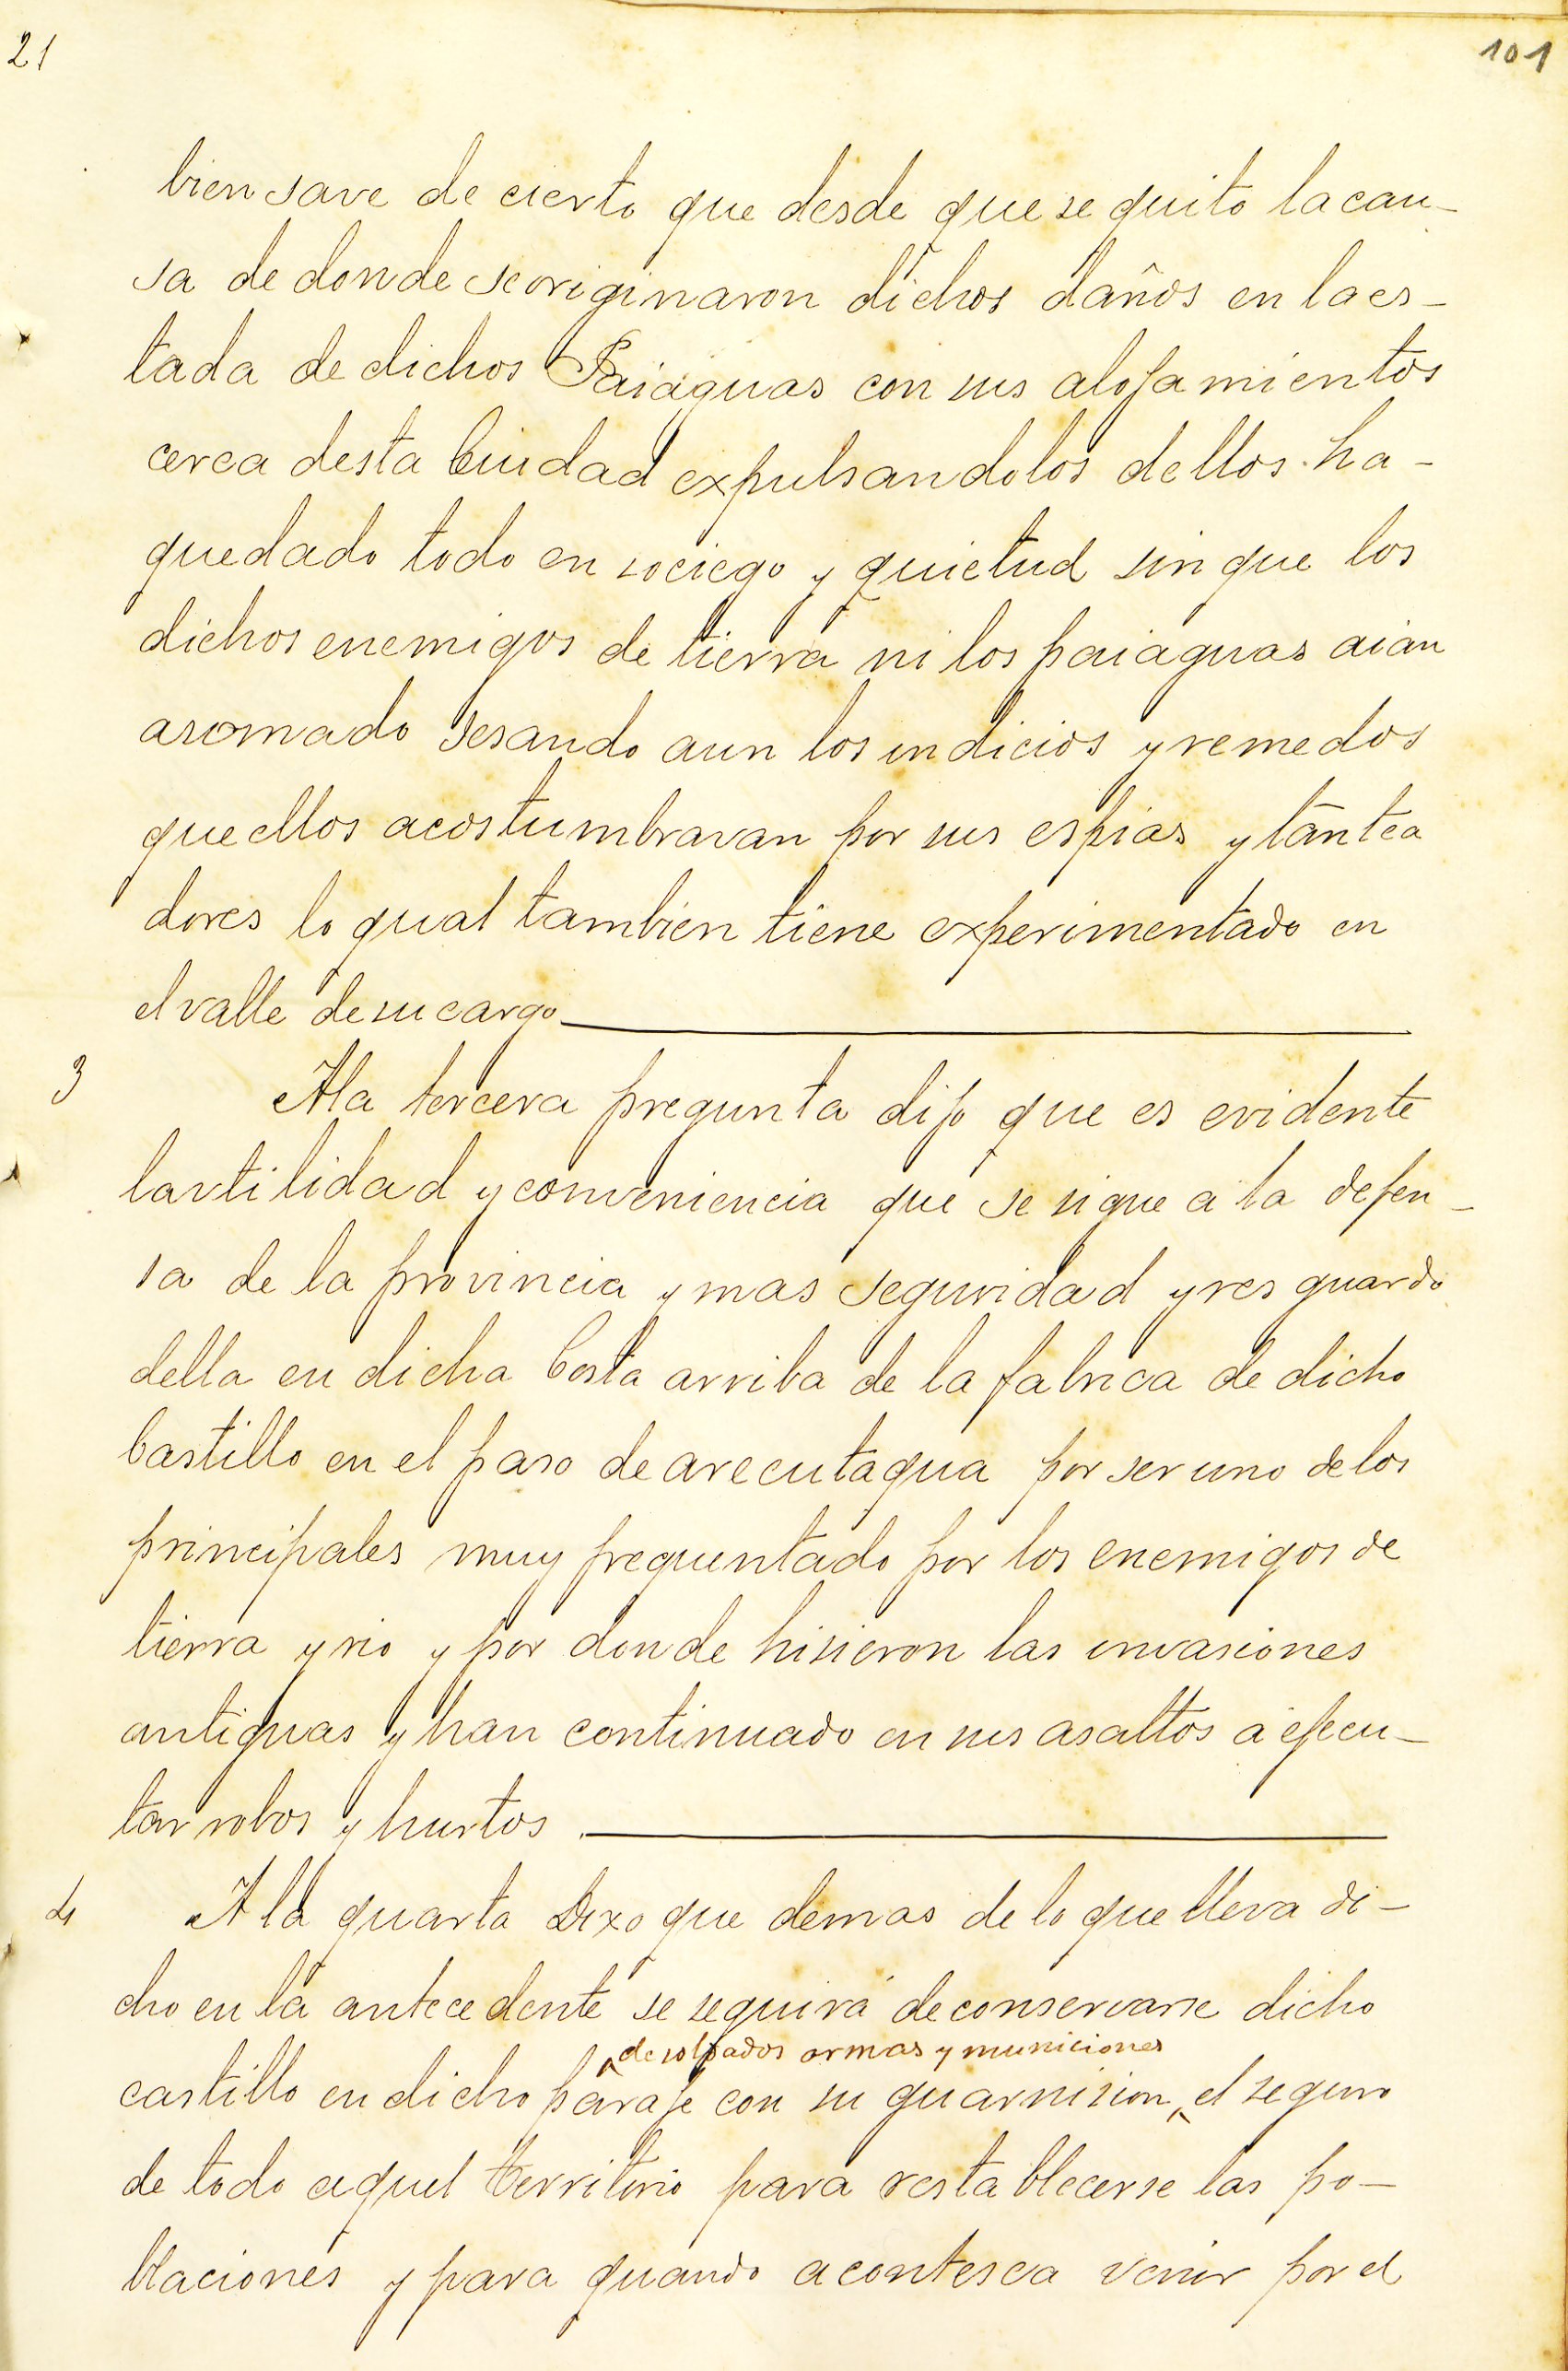 21
101
bien save de cierto que desde que se quito la cau-
sa de donde se originaron dichos daños en la es-
tada de dichos Paiaguas con sus alojamientos
cerca desta Ciudad expulsandolos dellos ha-
quedado todo en sociego y quietud sin que los
dichos enemigos de tierra ni los paiaguas aian
asomado sesando aun los indicios y remedos
que ellos acostumbravan por sus espias y tantea
dores lo qual tambien tiene experimentado en
el valle de su cargo
3
A la tercera pregunta dijo que es evidente
la vtilidad y conveniencia que se sigue a la defen-
sa de la provincia y mas seguridad y resguardo
della en dicha Costa arriba de la fabrica de dicho
Castillo en el paso de arecutagua por ser uno de los
principales muy frequentado por los enemigos de
tierra y rio y por donde hisieron las invasiones
antiguas y han continuado en sus asaltos a ejecu-
tar robos y hurtos
4
A la quarta Dixo que demas de lo que lleva di-
cho en la antecedente se seguirá de conservarse dicho
de soldados armas y municiones
castillo en dicho paraje con su guarnision el seguro
de todo aquel territorio para restablecerse las po-
blaciones y para quando acontesca venir por el